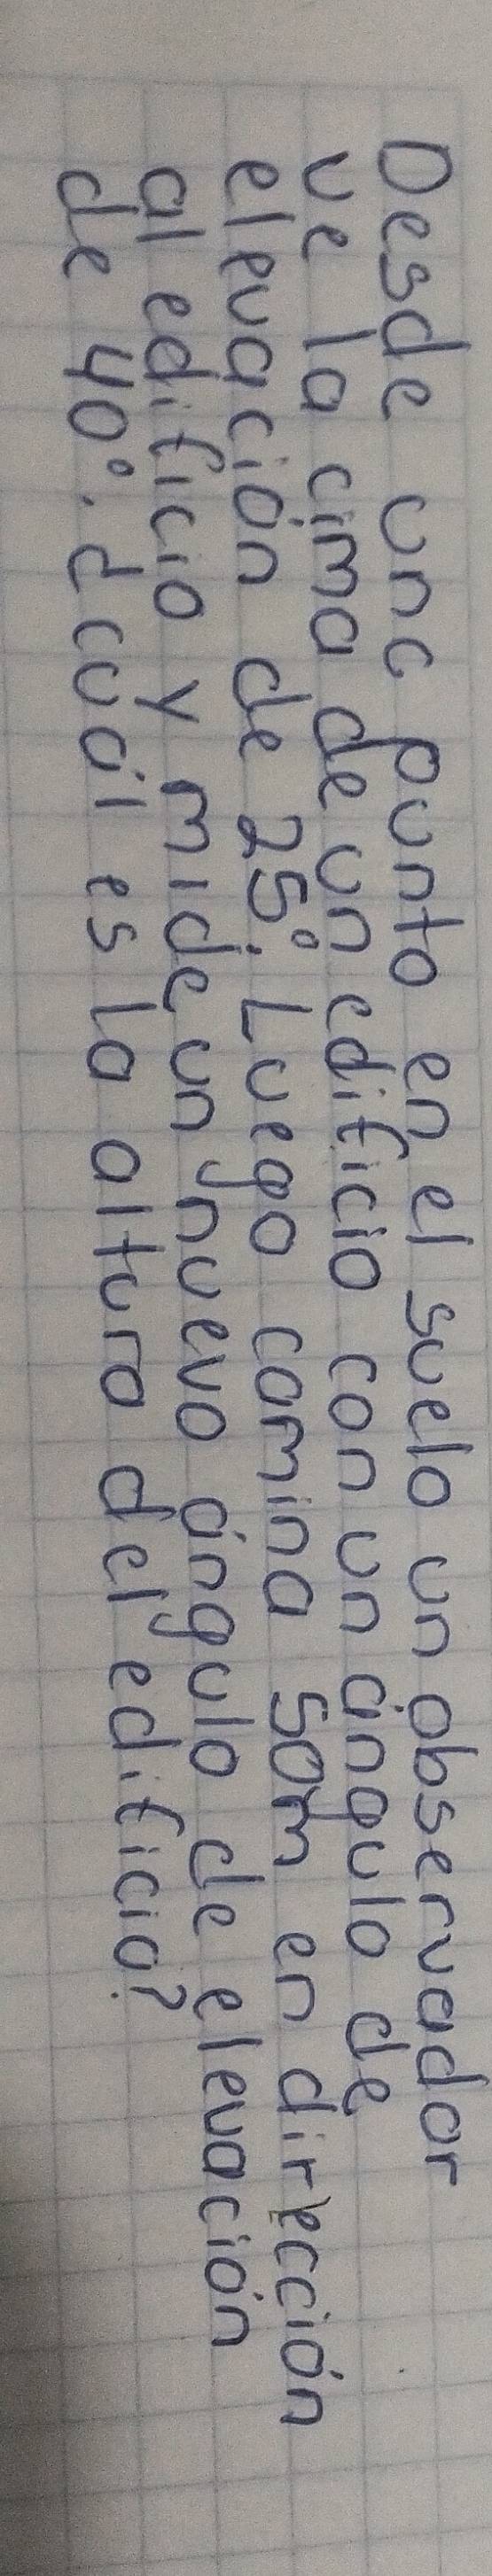 Desde unc punto en el suelo un observador
ve la cima de un edificio con un ángulo de
elevación de 25°. Luego camina 50m en dirección
al edificio y mide un nuevo ángulo de elevación
de 40°. ¿cuál es la altura del edificio?